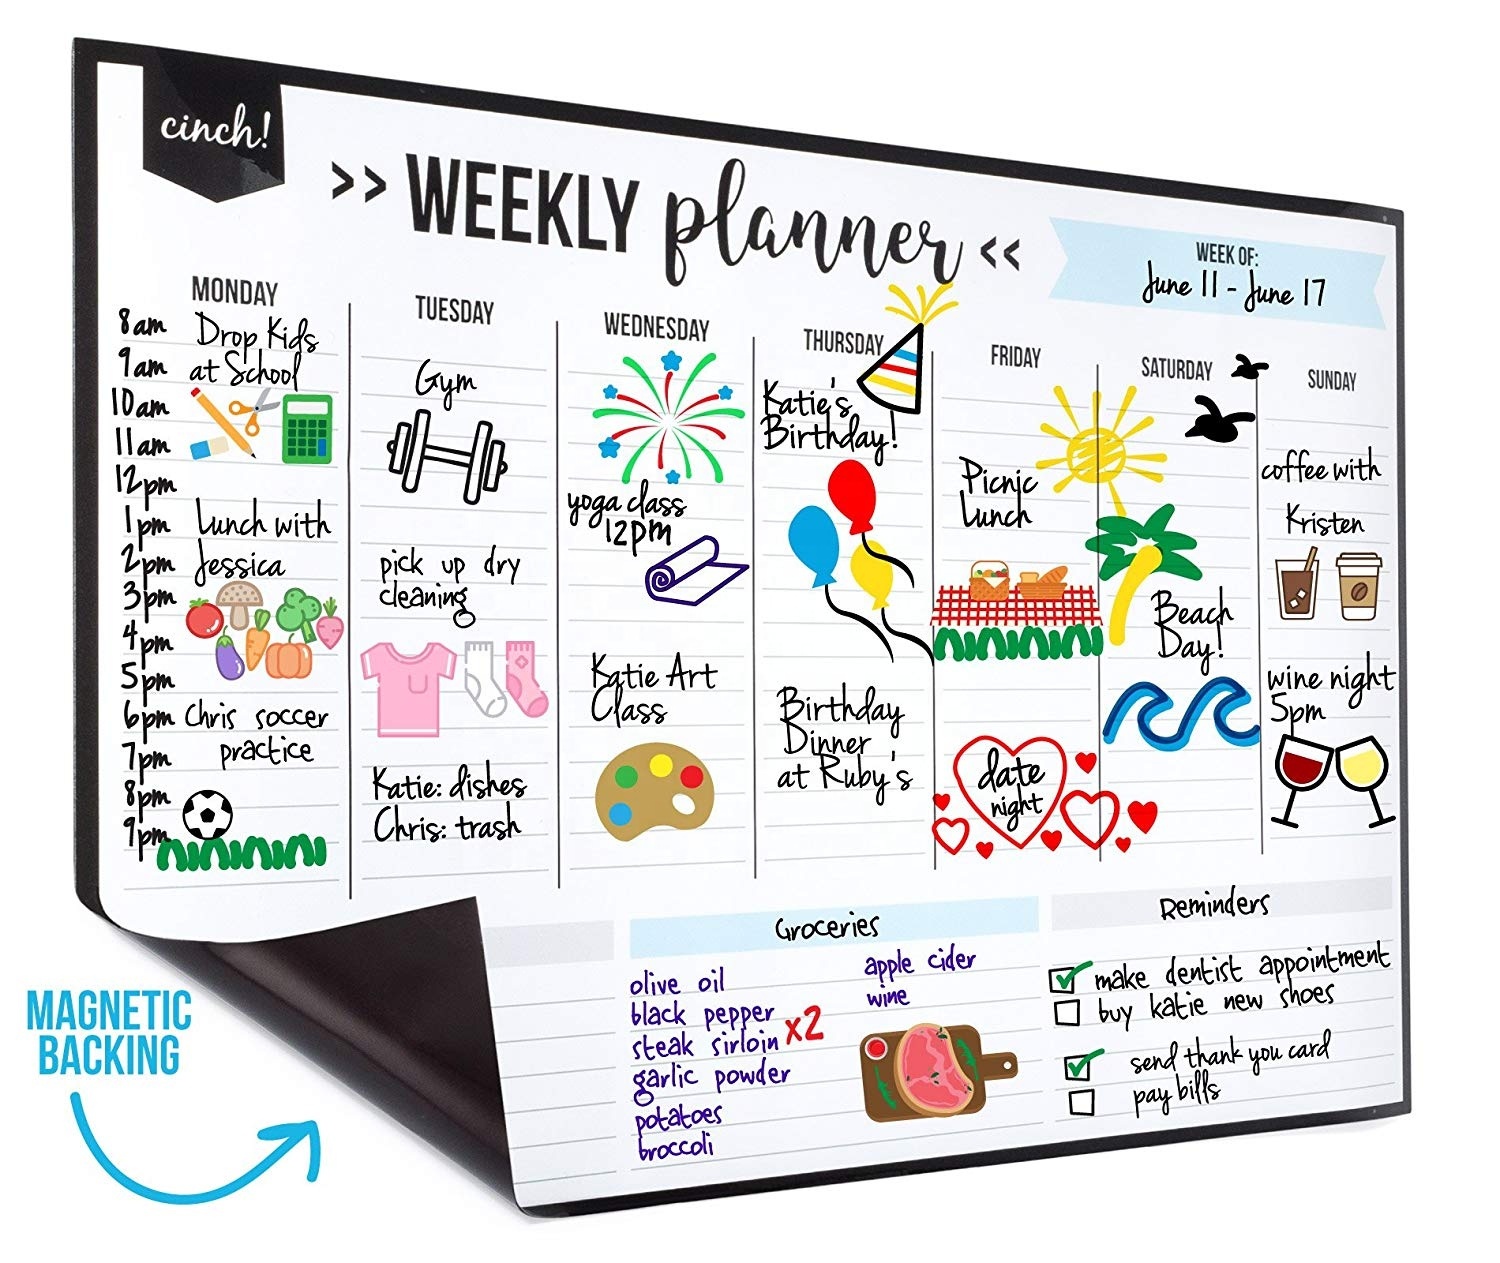 cinch!
>> WEEKLY planner <<
WEEK OF:
June 11 - June 17
MONDAY
8am
9am
10am
11am
12pm
1pm
2pm
3pm
4pm
5pm
6pm
7pm
8pm
9pm
Drop Kids
at School
Lunch with
Jessica
Chris soccer
practice
TUESDAY
Gym
pick up dry
cleaning
Katie: dishes
Chris: trash
WEDNESDAY
yoga class
12pm
Katie Art
Class
THURSDAY
Katie's
Birthday!
Birthday
Dinner
at Ruby's
FRIDAY
Picnic
Lunch
date
night
SATURDAY
Beach
Day!
SUNDAY
coffee with
Kristen
wine night
5pm
Groceries
olive oil
black pepper
steak sirloin x2
garlic powder
potatoes
broccoli
apple cider
wine
Reminders
make dentist appointment
buy katie new shoes
send thank you card
pay bills
MAGNETIC
BACKING